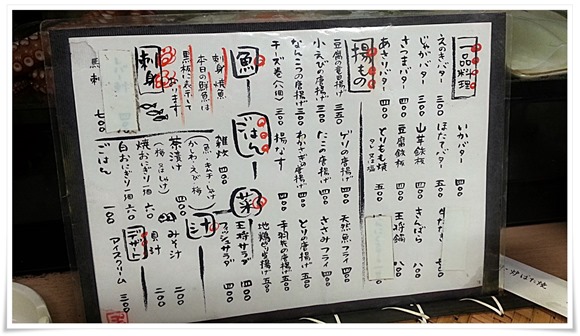 一品料理
えのきバター 三〇〇
じゃがバター 三〇〇
さつまバター 四〇〇
あさりバター 四〇〇
いかバター 四〇〇
ほたてバター 五〇〇
山芋鉄板
豆腐鉄板
とりもも焼 五〇〇
タレ又は塩
牛たたき
さんぱら 八〇〇
王将鍋
揚もの
豆腐の竜田揚げ 三五〇
小えびの唐揚げ 三〇〇
なんこつの唐揚げ 三〇〇
チーズ巻(八ヶ) 三〇〇
ゲソの唐揚げ
たこの唐揚げ 四〇〇
わかさぎの唐揚げ
揚なす 四〇〇
天然魚フライ 四〇〇
ささみフライ 四〇〇
とりの唐揚げ 五〇〇
手羽先の唐揚げ
地鶏の唐揚げ 五〇〇
魚
刺身 焼魚
本日の鮮魚は
黒板に表示して
あります
刺身
馬刺 七〇〇
ごはん
雑炊 四〇〇
茶漬け 四〇〇
焼おにぎり
白おにぎり
ごはん 一〇〇
菜
王将サラダ 四〇〇
フィッシュサラダ 四〇〇
汁
みそ汁 二〇〇
貝汁 二〇〇
デザート
アイスクリーム 三〇〇